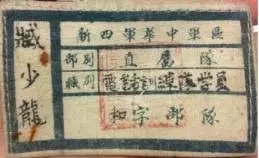 新四軍華中軍區
部別 直屬隊
職別 電話訓練隊學員
和字部隊
臧少龍